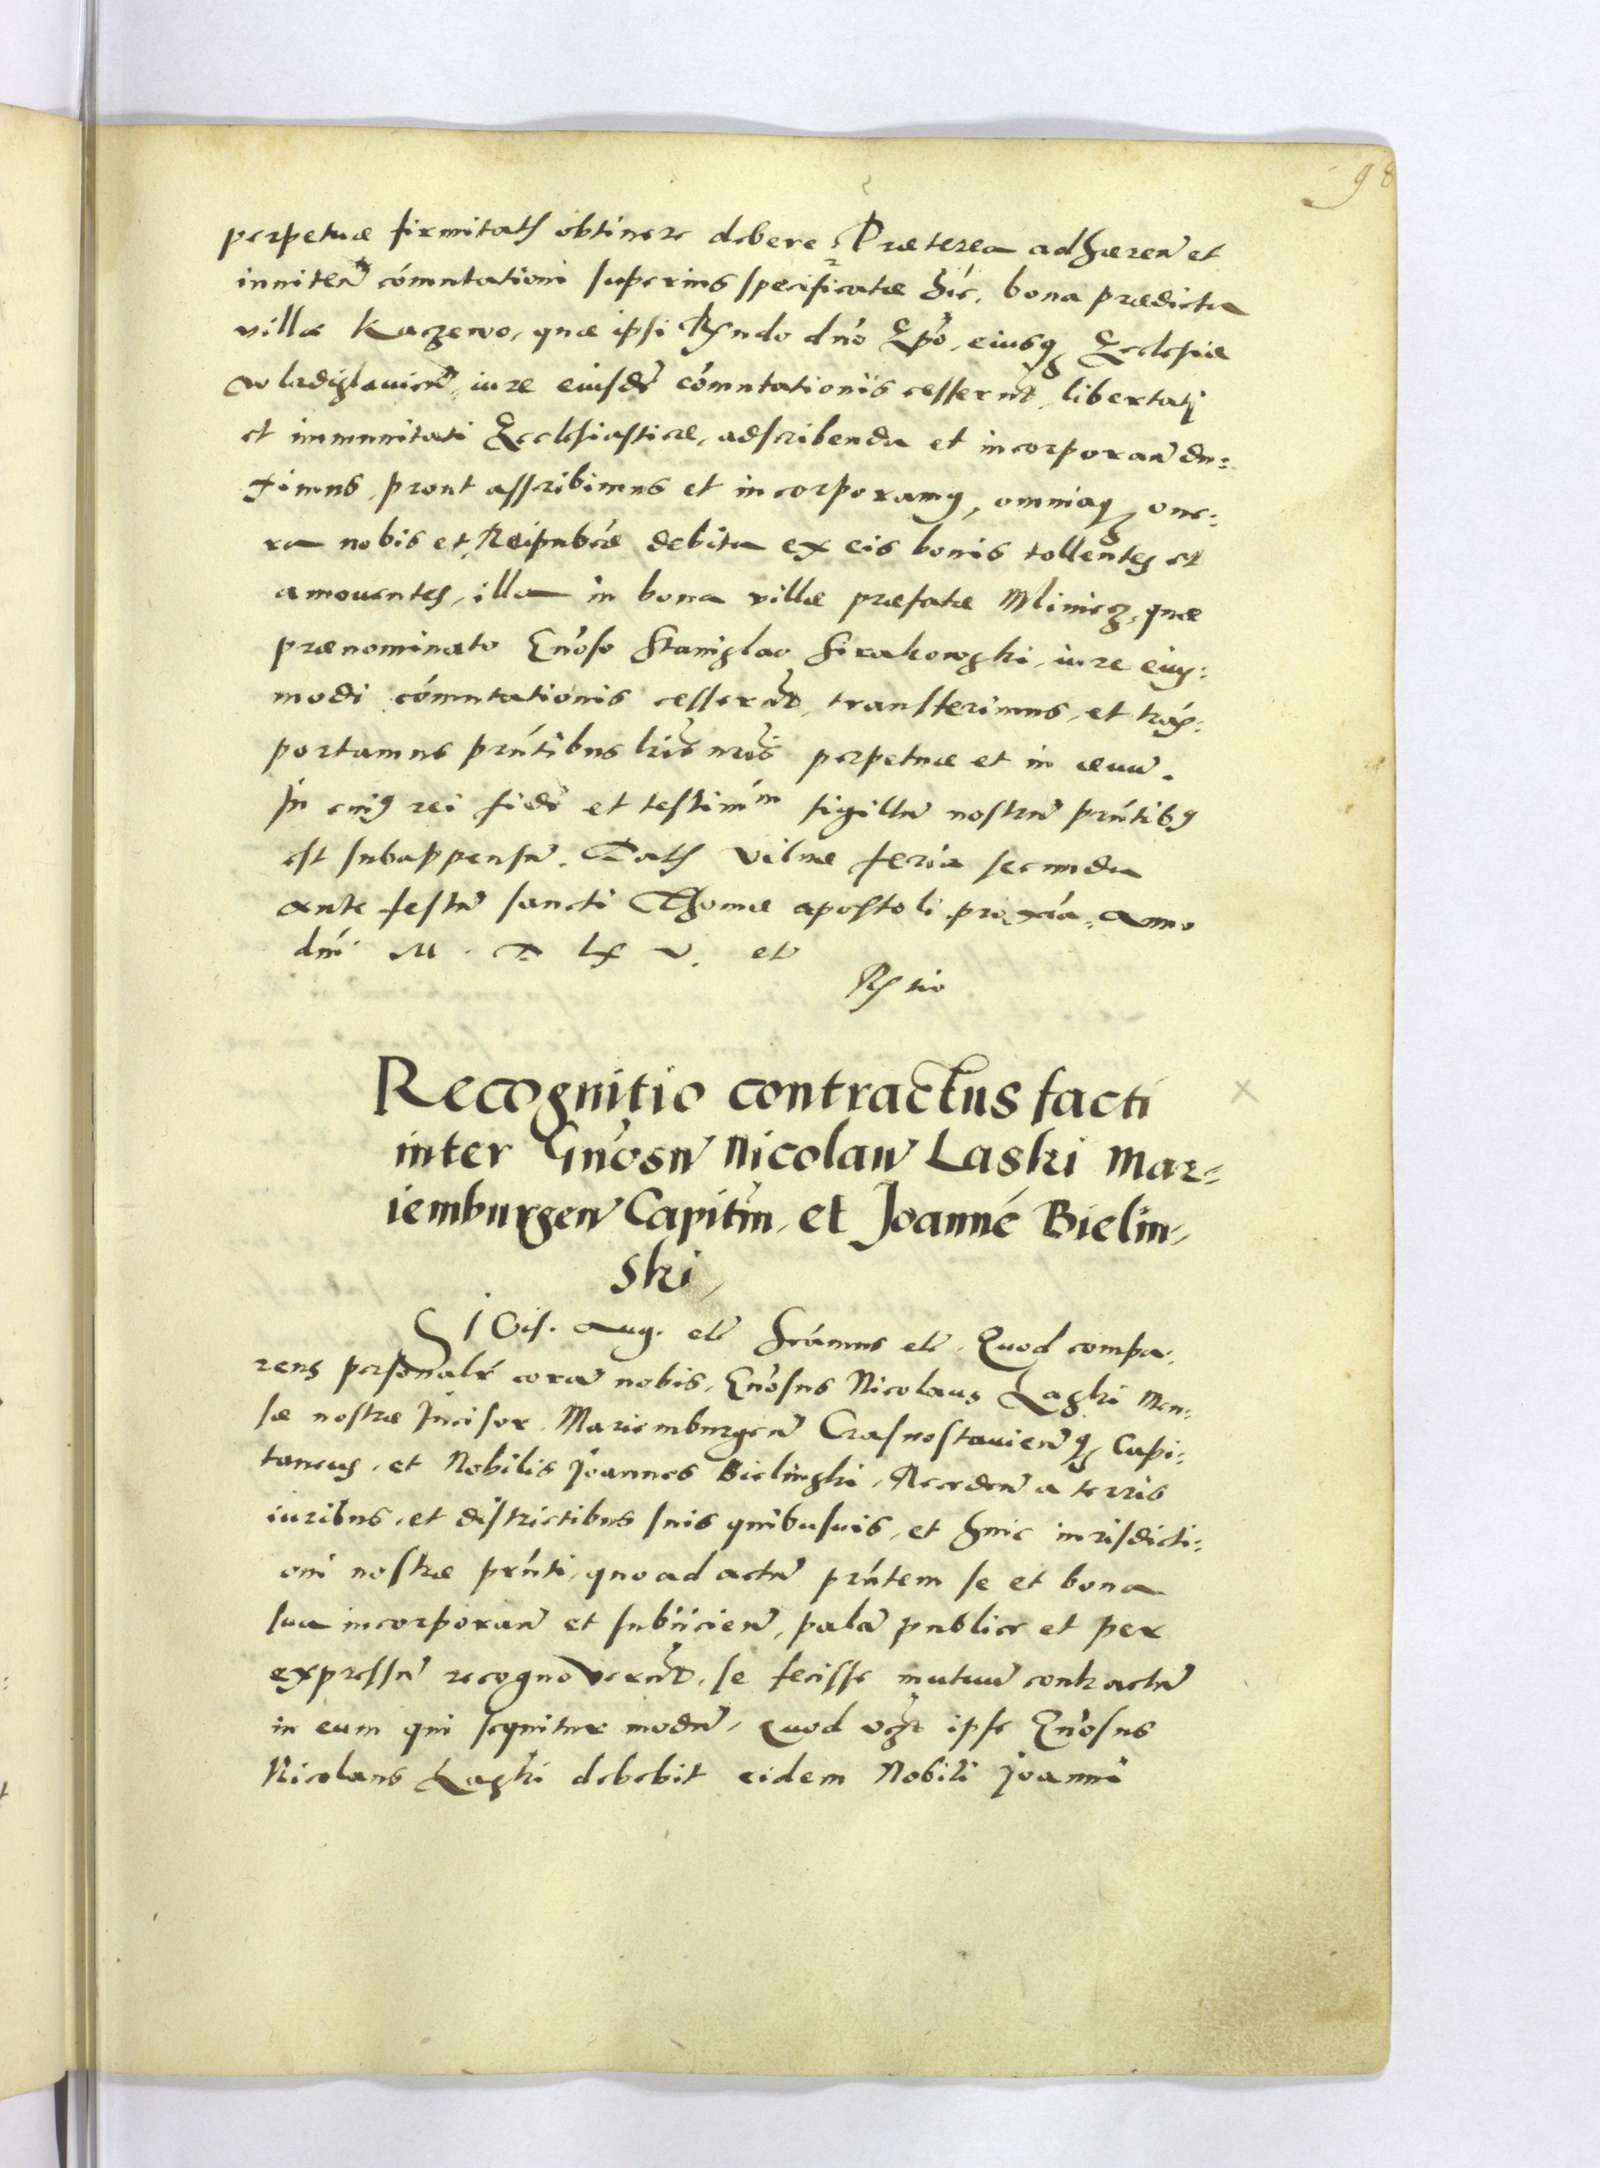 98
perpetuæ firmitatis obtinere debere, Præterea adhæren̄ et
inniten̄ cōmutationi superius specificatæ hīc, bona prædicta
villæ Kaczewo, quæ ipsi Rndo dnō Epō, eiusq₃ Ecclesiæ
Wladislauien̄, iure eiusdē cōmutationis cesserūt, libertati
et immunitati Ecclesiasticæ, adscribenda et incorporan̄ du=
ximus, prout asscribimus et incorporamꝰ, omniaq₃ one=
ra nobis et Reipubcæ debita ex eis bonis tollentes et
amouentes, illa in bona villæ præfatæ Mliniecz, quæ
prænominato Gnōso Stanislao Sirakowski, iure eius=
modi cōmutationis cesserūt, transferimus, et trās=
portamus pr̄ntibus lrīs nrīs perpetuæ et in æuū.
In cuiꝰ rei fidē et testim̄m sigillū nostrū pr̄ntibꝰ
est subappensū. Datis Vilnæ feria secunda
ante festū sancti Thomæ apostoli proxīa, Anno
dn̄i M. D LX V. et
Rs tio
Recognitio contractus facti
inter Gnōsū Nicolaū Laski Mar=
iemburgen̄ Capitn̄m, et Joannē Bielin=
ski,
SIGis. Aug. etc Scāmus etc. Quod compa=
rens personalr̄ corā nobis, Gnōsus Nicolaus Laski Men=
sæ nostræ Incisor Mariemburgen̄ Crasnostauien̄q₃ Capi=
taneus, et Nobilis Joannes Bielinski, Receden̄ a terris
iuribus, et districtibus suis quibusuis, et huic iurisdicti=
oni nostræ pr̄nti, quo ad actū pr̄ntem se et bona
sua incorporan̄ et subiicien̄, palā publice et per
expressū recognouerūt, se fecisse mutuū contractū
in eum qui sequitur modū, Quod ipse Gnōsus
Nicolaus Laski debebit eidem Nobili Joanni